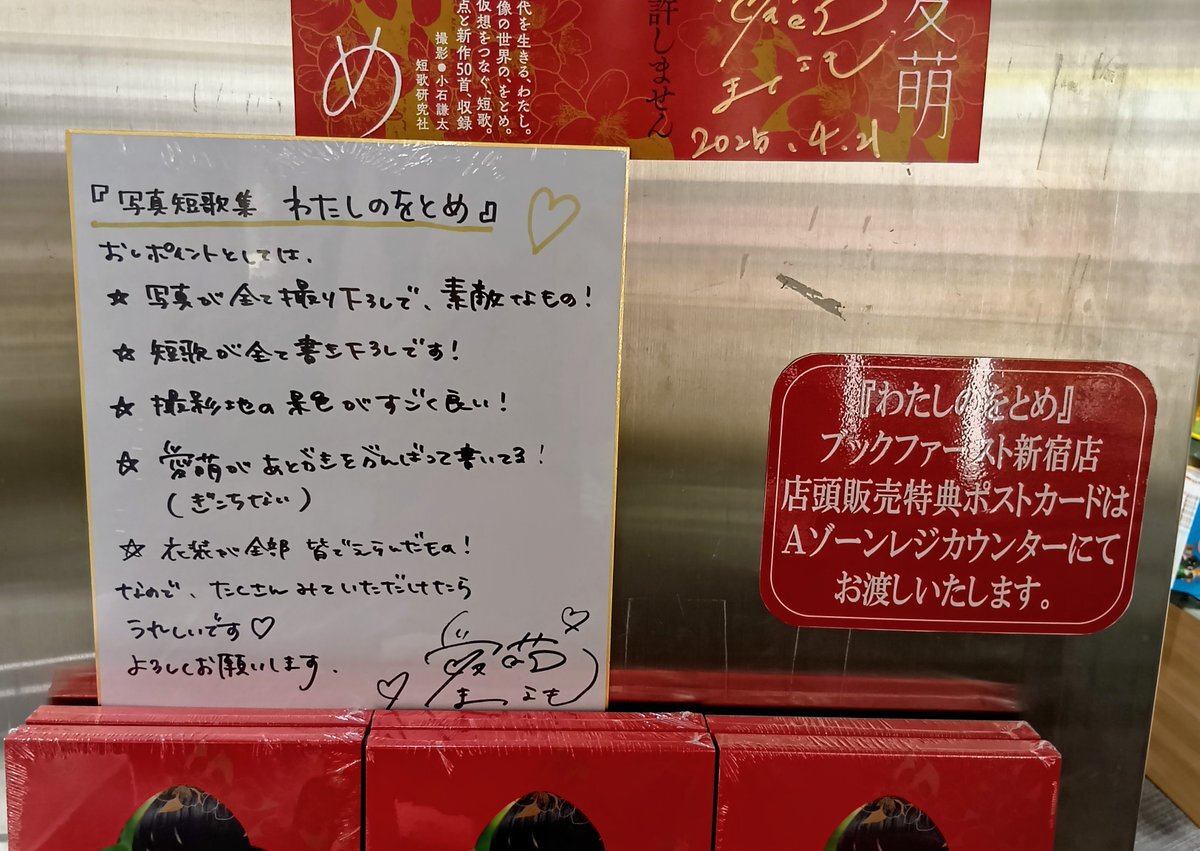 め
代を生きる、わたし。
像の世界の、をとめ。
仮想をつなぐ、短歌。
点と新作50首、収録
撮影●小石謙太
短歌研究社
許しません
愛萌
2025.4.21
『写真短歌集 わたしのをとめ』
おしポイントとしては、
☆ 写真が全て撮り下ろしで、素敵なもの!
☆ 短歌が全て書き下ろしです!
☆ 撮影地の景色がすごく良い!
☆ 愛萌があとがきをがんばって書いてる!
(ぎこちない)
☆ 衣装が全部 皆でえらんだもの!
なので、たくさんみていただけたら
うれしいです♡
よろしくお願いします.
愛萌
『わたしのをとめ』
ブックファースト新宿店
店頭販売特典ポストカードは
Aゾーンレジカウンターにて
お渡しいたします。